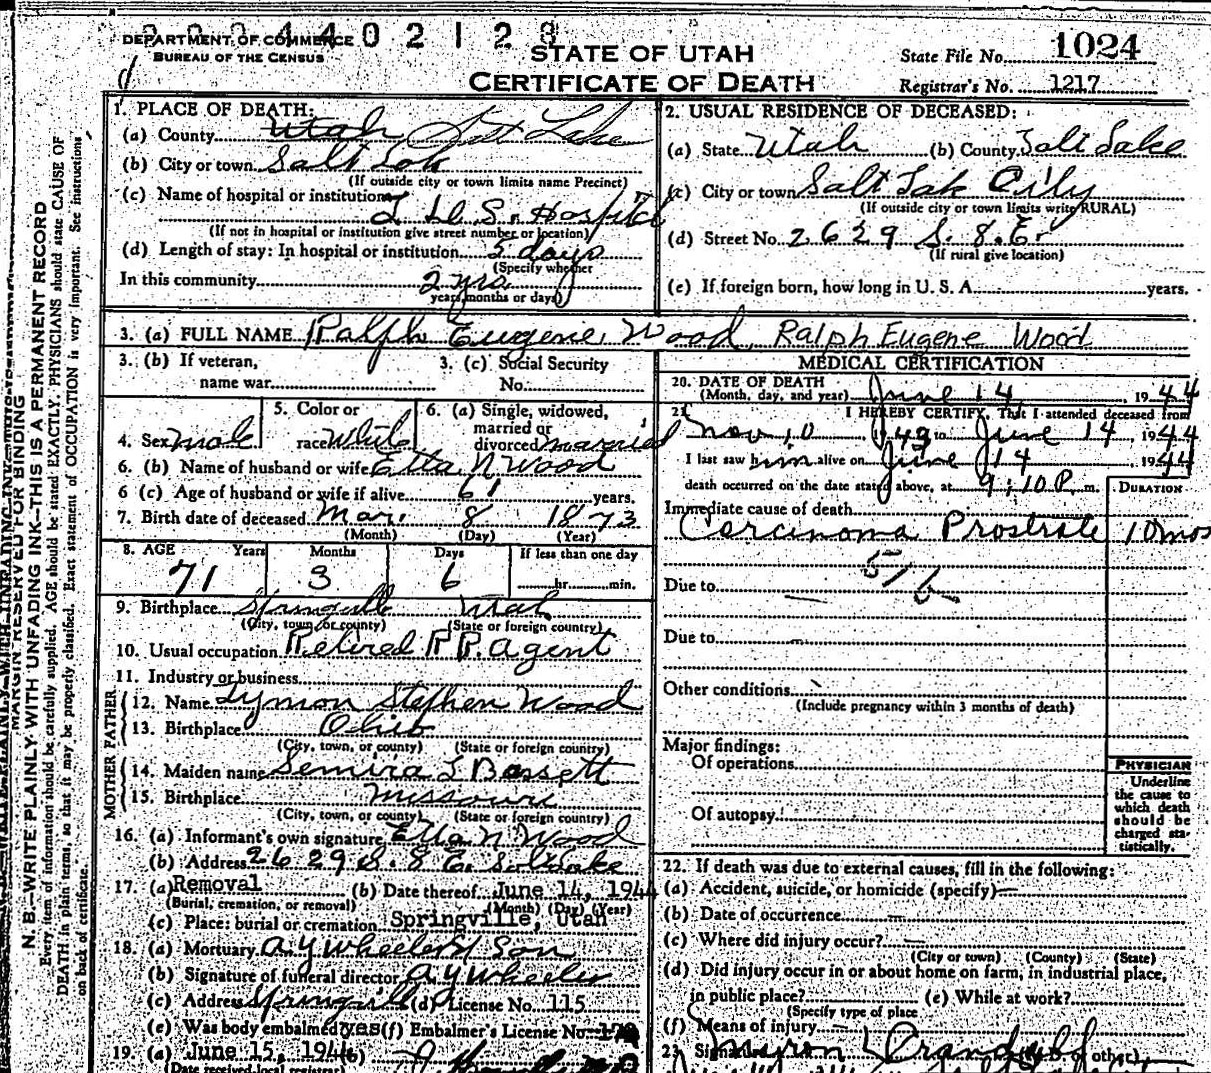 DEPARTMENT OF COMMERCE
BUREAU OF THE CENSUS
4402128
STATE OF UTAH
CERTIFICATE OF DEATH
State File No. 1024
Registrar's No. 1217
1. PLACE OF DEATH:
(a) County Utah Salt Lake
(b) City or town Salt Lak
(If outside city or town limits name Precinct)
(c) Name of hospital or institution
L. D. S. Hospital
(If not in hospital or institution give street number or location)
(d) Length of stay: In hospital or institution 5 days
(Specify whether
In this community 2 yrs
years, months or days)
2. USUAL RESIDENCE OF DECEASED:
(a) State Utah (b) County Salt Lake
(c) City or town Salt Lak City
(If outside city or town limits write RURAL)
(d) Street No. 2629 S. 8. E.
(If rural give location)
(e) If foreign born, how long in U. S. A. years.
3. (a) FULL NAME Ralph Eugene Wood, Ralph Eugene Wood
3. (b) If veteran,
name war
3. (c) Social Security
No.
4. Sex male
5. Color or
race White
6. (a) Single, widowed,
married or
divorced married
6. (b) Name of husband or wife Etta N Wood
6 (c) Age of husband or wife if alive 61 years.
7. Birth date of deceased Mar. 8 1873
(Month) (Day) (Year)
8. AGE Years Months Days If less than one day
71 3 6 hr. min.
9. Birthplace Springville Utah
(City, town, or county) (State or foreign country)
10. Usual occupation Retired R R. agent
11. Industry or business
FATHER
12. Name Lyman Stephen Wood
13. Birthplace Ohio
(City, town, or county) (State or foreign country)
MOTHER
14. Maiden name Semira L Bassett
15. Birthplace Missouri
(City, town, or county) (State or foreign country)
16. (a) Informant's own signature Etta N Wood
(b) Address 2629 S. 8 E. Salt Lake
17. (a) Removal (b) Date thereof June 14, 1944
(Burial, cremation, or removal) (Month) (Day) (Year)
(c) Place: burial or cremation Springville, Utah
18. (a) Mortuary A Y Wheeler & Son
(b) Signature of funeral director A Y Wheeler
(c) Address Springville (d) License No. 115
(e) Was body embalmed yes (f) Embalmer's License No.
19. (a) June 15, 1944 (b)
(Date received local registrar)
MEDICAL CERTIFICATION
20. DATE OF DEATH
(Month, day, and year) June 14, 1944
21. I HEREBY CERTIFY, That I attended deceased from
Nov 10 1943 to June 14, 1944
I last saw him alive on June 14 1944
death occurred on the date stated above, at 9:10 P. m.
DURATION
Immediate cause of death
Carcinoma Prostrate 10 mos
51b
Due to
Due to
Other conditions
(Include pregnancy within 3 months of death)
Major findings:
Of operations
Of autopsy
PHYSICIAN
Underline
the cause to
which death
should be
charged sta-
tistically.
22. If death was due to external causes, fill in the following:
(a) Accident, suicide, or homicide (specify)
(b) Date of occurrence
(c) Where did injury occur?
(City or town) (County) (State)
(d) Did injury occur in or about home on farm, in industrial place,
in public place? (e) While at work?
(Specify type of place
(f) Means of injury
23. Signature Myron Crandall
MARGIN RESERVED FOR BINDING
N. B.—WRITE PLAINLY WITH UNFADING INK—THIS IS A PERMANENT RECORD
Every item of information should be carefully supplied. AGE should be stated EXACTLY. PHYSICIANS should state CAUSE OF
DEATH in plain terms, so that it may be properly classified. Exact statement of OCCUPATION is very important. See instructions
on back of certificate.